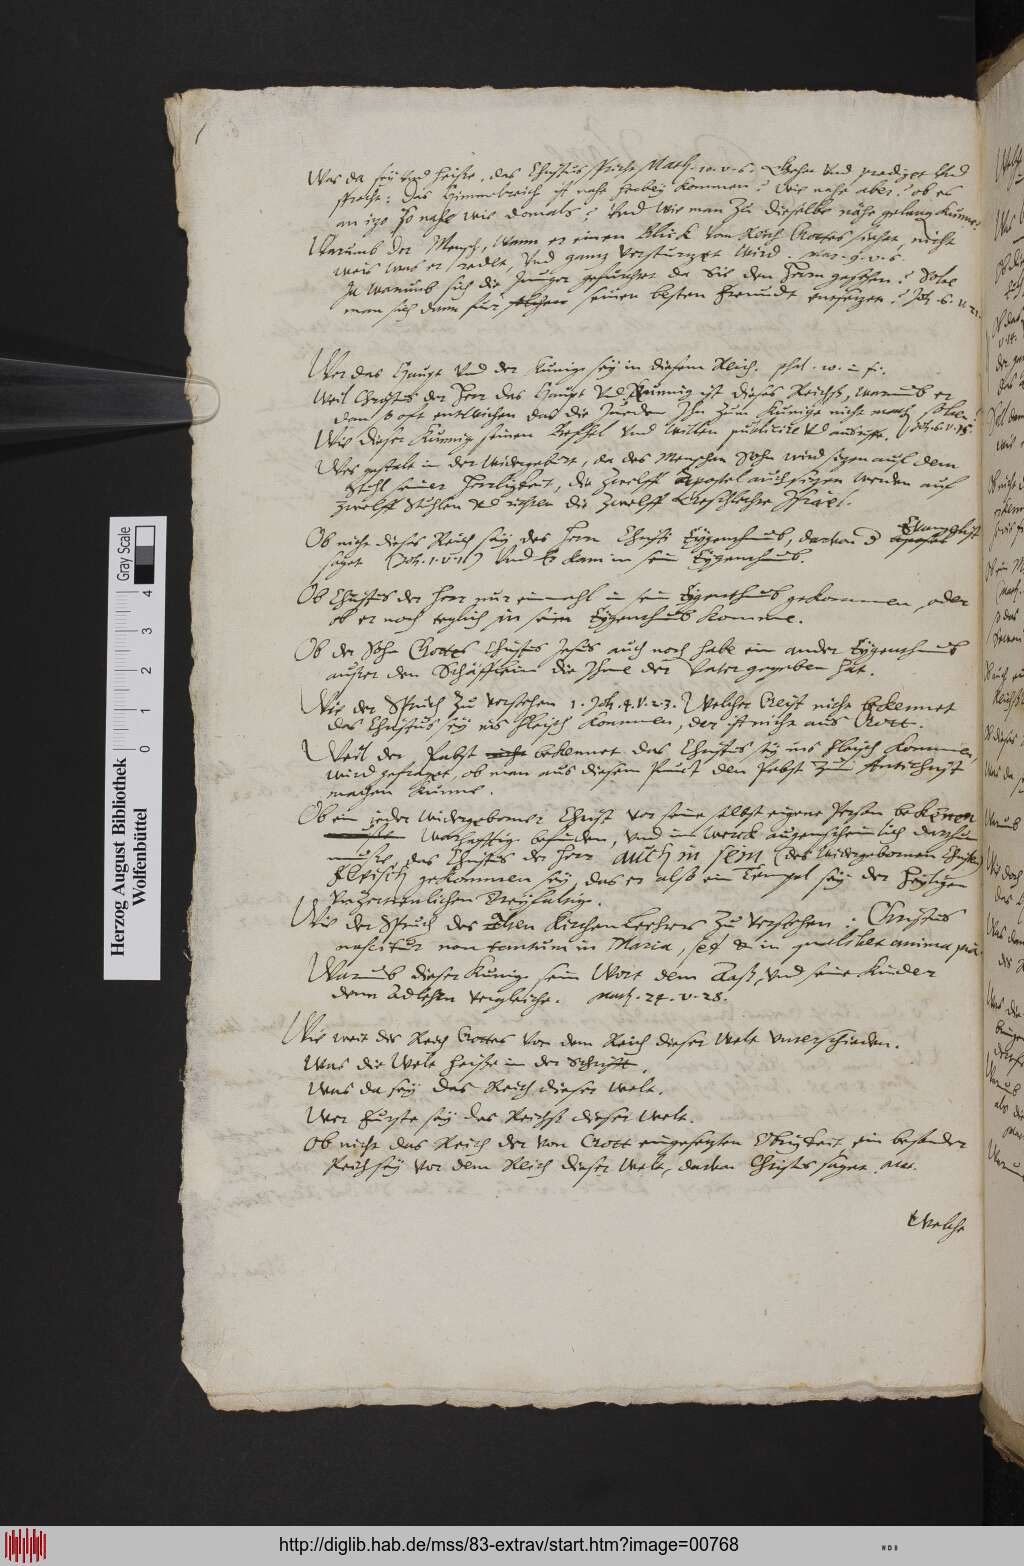 Was da sey und heiße, das Christus spricht Math. 10. v. 6. Gehet und prediget und
sprecht: Das Himmelreich ist nahe herbey kommen? Wie nahe aber? ob es
an izo so nahe wie domals? Und wie man zu dieselbe nähe gelang kunne?
Warumb der Mensch, wann er einen Blick vom Reich Gottes siehet, nicht
weis was er redet, und ganz versturzt wird. Mar. 9. v. 6.
Ja warumb sich die Junger gefürchtet da Sie den Herrn gesehen? Solt
man sich dann für seinen besten Freundt entsetzen? Joh. 6. v. 21.
Wer das Haupt und der Kunig sey in diesem Reich.
Weil Christus der Herr das Haupt und Kunnig ist dieses Reichs, warumb er
dan so oft entwichen das die Jueden Ihn zum Kunige nicht mach solten? Joh. 6. v. 15
Wie dieser Kunnig seinen Befehl und Willen publicire und ausruffe.
Was gestalt in der Widergeburt, da des Menschen Sohn wird sitzen auf dem
Stuhl seiner Herrligkeit, die zwelff Apostel auch sitzen werden auf
zwelff Stuhlen und richten die zwelff Geschlechte Israel.
Ob nicht dieses Reich sey des Herrn Christi Eygenthumb, davon d Evangelist
saget (Joh. 1. v. 11) Und Er kam in sein Eygenthumb.
Ob Christus der Herr nur einmahl in sein Eygenthumb gekommen, oder
ob er noch teglich in sein Eygenthumb komme.
Ob der Sohn Gottes Christus Jesus auch noch habe ein ander Eygenthumb
ausser den Schäfflein die Ihme der Vater gegeben hat.
Wie der Spruch zu verstehen 1. Joh. 4. v. 2. 3. Welcher Geist nicht bekennet
das Christus sey ins Fleisch kommen, der ist nicht aus Gott.
Weil der Pabst nicht bekennet das Christus sey ins Fleisch kommen,
wird gefraget, ob man aus diesem Punct den Pabst zum Antichrist
machen kunne.
Ob ein jeder widergeborner Christ vor seine selbst eigene Person bekenen
warhafftig befinden, und im werck augenscheinlich darthun
musse, das Christus der Herr auch in sein (des Widergebornen Christen)
Fleisch gekommen sey, das er alß ein Tempel sey der Heyligen
Unzertrenlichen Dreyfaltig.
Wie der Spruch des Alten Kirchen Lehrers zu verstehen: Christus
nascitur non tantum in Maria, sed & in qualibet anima pia.
Warumb dieser Kunig sein Wort dem Aaß, und seine Kinder
denn Adlehrn vergleiche. Math. 24. v. 28.
Wie weit des Reich Gottes von dem Reich dieser Welt unterschieden.
Was die Welt heisse in der Schrifft.
Was da sey das Reich dieser Welt.
Wer Furste sey des Reichs dieser Welt.
Ob nicht das Reich der von Gott eingesetzten Obrigkeit ein besonder
Reich sey vor dem Reich dieser Welt, davon Christus saget.
Welche
Herzog August Bibliothek
Wolfenbüttel
Gray Scale
0 1 2 3 4
http://diglib.hab.de/mss/83-extrav/start.htm?image=00768